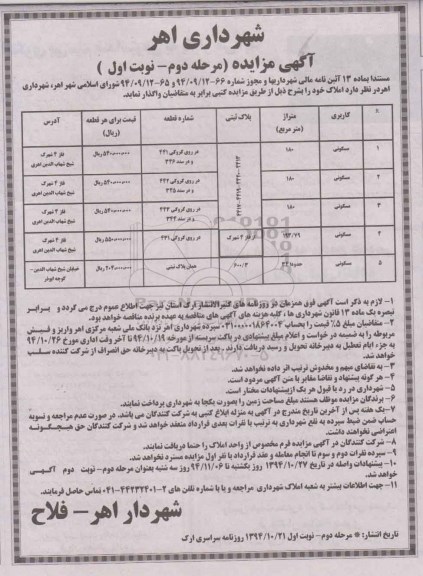 شهرداری اهر
آگهی مزایده (مرحله دوم - نوبت اول )
مستندا بماده ۱۳ آئین نامه مالی شهرداریها و مجوز شماره ۶۶-۹۴/۰۹/۱۲ و ۶۵-۹۴/۰۹/۱۲ شورای اسلامی شهر اهر، شهرداری
اهر در نظر دارد املاک خود را بشرح ذیل از طریق مزایده کتبی برابر به متقاضیان واگذار نماید.
کاربری متراژ (متر مربع) پلاک ثبتی شماره قطعه قیمت برای هر قطعه (ریال) آدرس
۱ مسکونی ۱۸۰ در روی کروکی ۴۴۱ و در سند ۳۴۶ ۵۴۰/۰۰۰/۰۰۰ ریال فاز ۲ شهرک شیخ شهاب الدین اهری
۲ مسکونی ۱۸۰ در روی کروکی ۴۴۲ و در سند ۳۴۵ ۵۴۰/۰۰۰/۰۰۰ ریال فاز ۲ شهرک شیخ شهاب الدین اهری
۳ مسکونی ۱۸۰ در روی کروکی ۴۴۳ و در سند ۳۴۴ ۵۴۰/۰۰۰/۰۰۰ ریال فاز ۲ شهرک شیخ شهاب الدین اهری
۴ مسکونی ۱۹۳/۷۹ از فاز ۲ شهرک در روی کروکی ۴۳۱ ۵۵۰/۰۰۰/۰۰۰ ریال فاز ۲ شهرک شیخ شهاب الدین اهری
۵ مسکونی حدودا ۶۰۰/۳ همان پلاک ثبتی ۲۰۲/۰۰۰/۰۰۰ ریال خیابان شیخ شهاب الدین - کوچه ابوذر
۱- لازم به ذکر است آگهی فوق همزمان در روزنامه های کثیرالانتشار ارک استان نیز جهت اطلاع عموم درج می گردد و برابر
تبصره یک ماده ۱۳ قانون شهرداری ها ، کلیه هزینه های آگهی های مناقصه به عهده برنده مناقصه خواهد بود.
۲- متقاضیان مبلغ ۵٪ قیمت را بحساب ۰۳۱۰۰۰۰۰۱۸۶۴۰۰۳ سپرده شهرداری اهر نزد بانک ملی شعبه مرکزی اهر واریز و فیش
مربوطه را به ضمیمه در خواست و اعلام مبلغ پیشنهادی در پاکت سربسته از مورخه ۹۴/۱۰/۱۹ تا آخر وقت اداری مورخ ۹۴/۱۰/۲۶
به جزء ایام تعطیل به دبیرخانه تحویل و رسید دریافت دارند . بعد از تحویل پاکت به دبیرخانه حق انصراف از شرکت کننده سلب
خواهد شد.
۳- به تقاضای مبهم و مخدوش ترتیب اثر داده نخواهد شد.
۴- هر گونه پیشنهاد و تقاضا مغایر با متن آگهی مردود است.
۵- شهرداری در رد یا قبول هر یک از پیشنهادات مختار است.
۶- برندگان مزایده موظف هستند مبلغ مساحت زمین را بصورت یکجا به شهرداری پرداخت نمایند.
۷- یک هفته پس از آخرین تاریخ مندرج در آگهی به منزله ابلاغ کتبی به شرکت کنندگان می باشد. در صورت عدم مراجعه و تسویه
حساب ضمن ضبط سپرده به نفع شهرداری به ترتیب با نفرات بعدی قرارداد منعقد خواهد شد و شرکت کنندگان حق هیچگونه
اعتراضی نخواهند داشت.
۸- شرکت کنندگان در آگهی مزایده فرم مخصوص از واحد املاک را حتما دریافت نمایند.
۹- سپرده نفرات دوم و سوم تا انجام معامله و عقد قرارداد با نفر اول مزایده مسترد نخواهد شد.
۱۰- پیشنهادات واصله در تاریخ ۱۳۹۴/۱۰/۲۷ روز یکشنبه تا ۹۴/۱۱/۰۶ روز سه شنبه بعنوان مرحله دوم- نوبت دوم آگهی
خواهد شد.
۱۱- جهت اطلاعات بیشتر به شعبه املاک شهرداری مراجعه و یا با شماره تلفن های ۲-۰۴۱-۴۴۲۳۳۴۰۱ تماس حاصل فرمایند.
شهردار اهر - فلاح
تاریخ انتشار: * مرحله دوم- نوبت اول ۱۳۹۴/۱۰/۲۱ روزنامه سراسری ارک